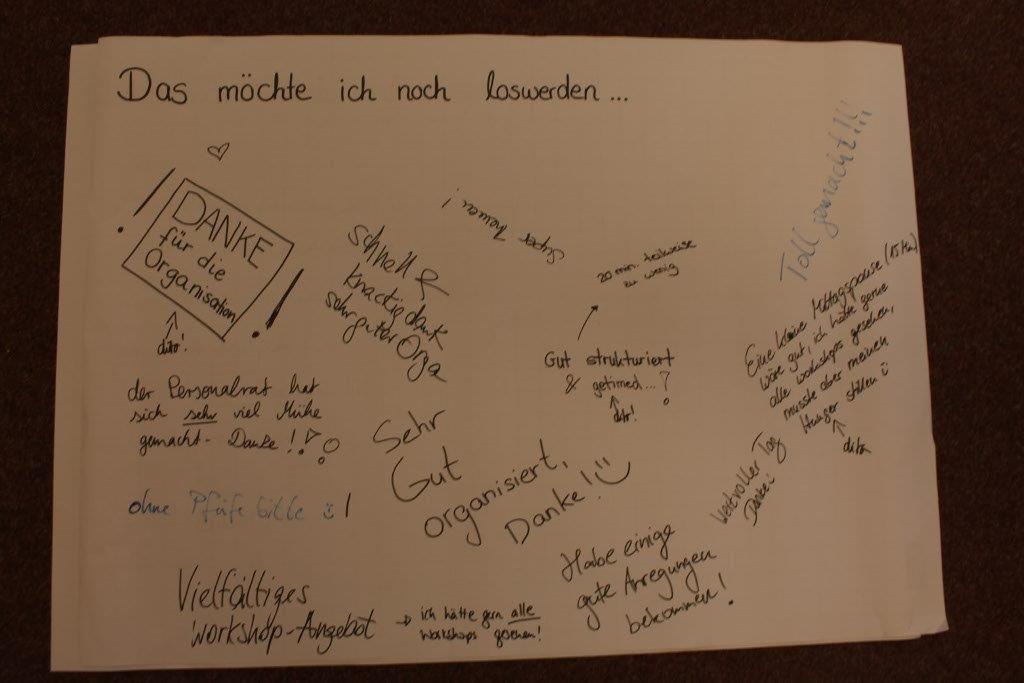 Das möchte ich noch loswerden...
DANKE
für die
Organisation
dito!
schnell &
knackig dank
sehr guter Orga
super Themen!
20 min. teilweise
zu wenig
Gut strukturiert
& getimed...?
dito!
Toll gemacht!!!
Eine kleine Mittagspause (15 Min)
wäre gut, ich hätte gerne
alle workshops gesehen,
musste aber meinen
Hunger stillen
dito
der Personalrat hat
sich sehr viel Mühe
gemacht- Danke!!
ohne Pfeife bitte !
Sehr
Gut
organisiert,
Danke!
wertvoller Tag
Danke!
Habe einige
gute Anregungen
bekommen!
Vielfältiges
Workshop-Angebot
→ ich hätte gern alle
workshops gesehen!